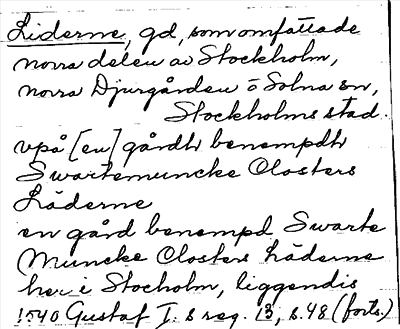 Liderne, gd, som omfattade
norra delen av Stockholm,
norra Djurgården o Solna sn,
Stockholms stad.
vpå [en] gårdh benempdh
Swartemuncke Closters
Läderne
en gård benempd Swarte
Muncke Closters häderne
her i Stocholm, liggendis
1540 Gustaf I:s reg. 13, s. 48 (forts.)